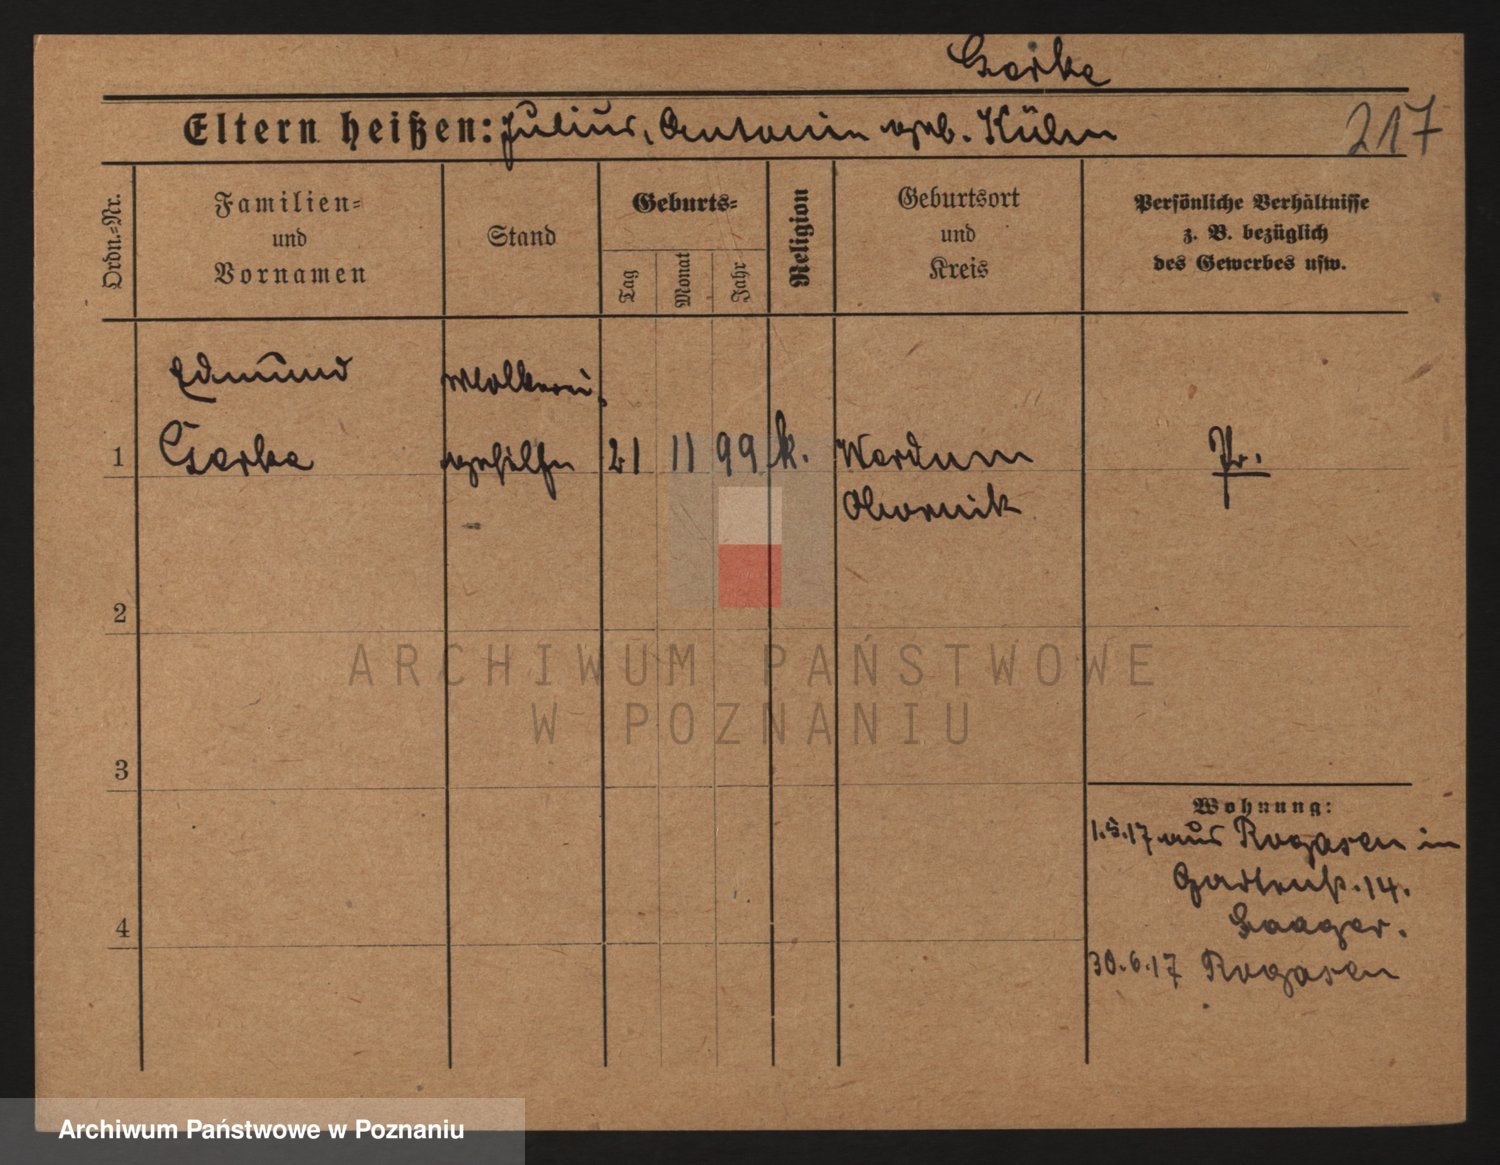 Gorke
Eltern heißen: Julius, Antonie geb. Kühn
217
Ordn.=Nr.
Familien=
und
Vornamen
Stand
Geburts=
Tag
Monat
Jahr
Religion
Geburtsort
und
Kreis
Persönliche Verhältnisse
z. B. bezüglich
des Gewerbes usw.
Edmund Molkerei
1 Gorke gehilfe 21 11 99 k. Pr.
Obornik
2
3
4
Wohnung:
1.5.17 aus Rogasen in
Gartenstr. 14.
30.6.17 Rogasen
ARCHIWUM PAŃSTWOWE
W POZNANIU
Archiwum Państwowe w Poznaniu